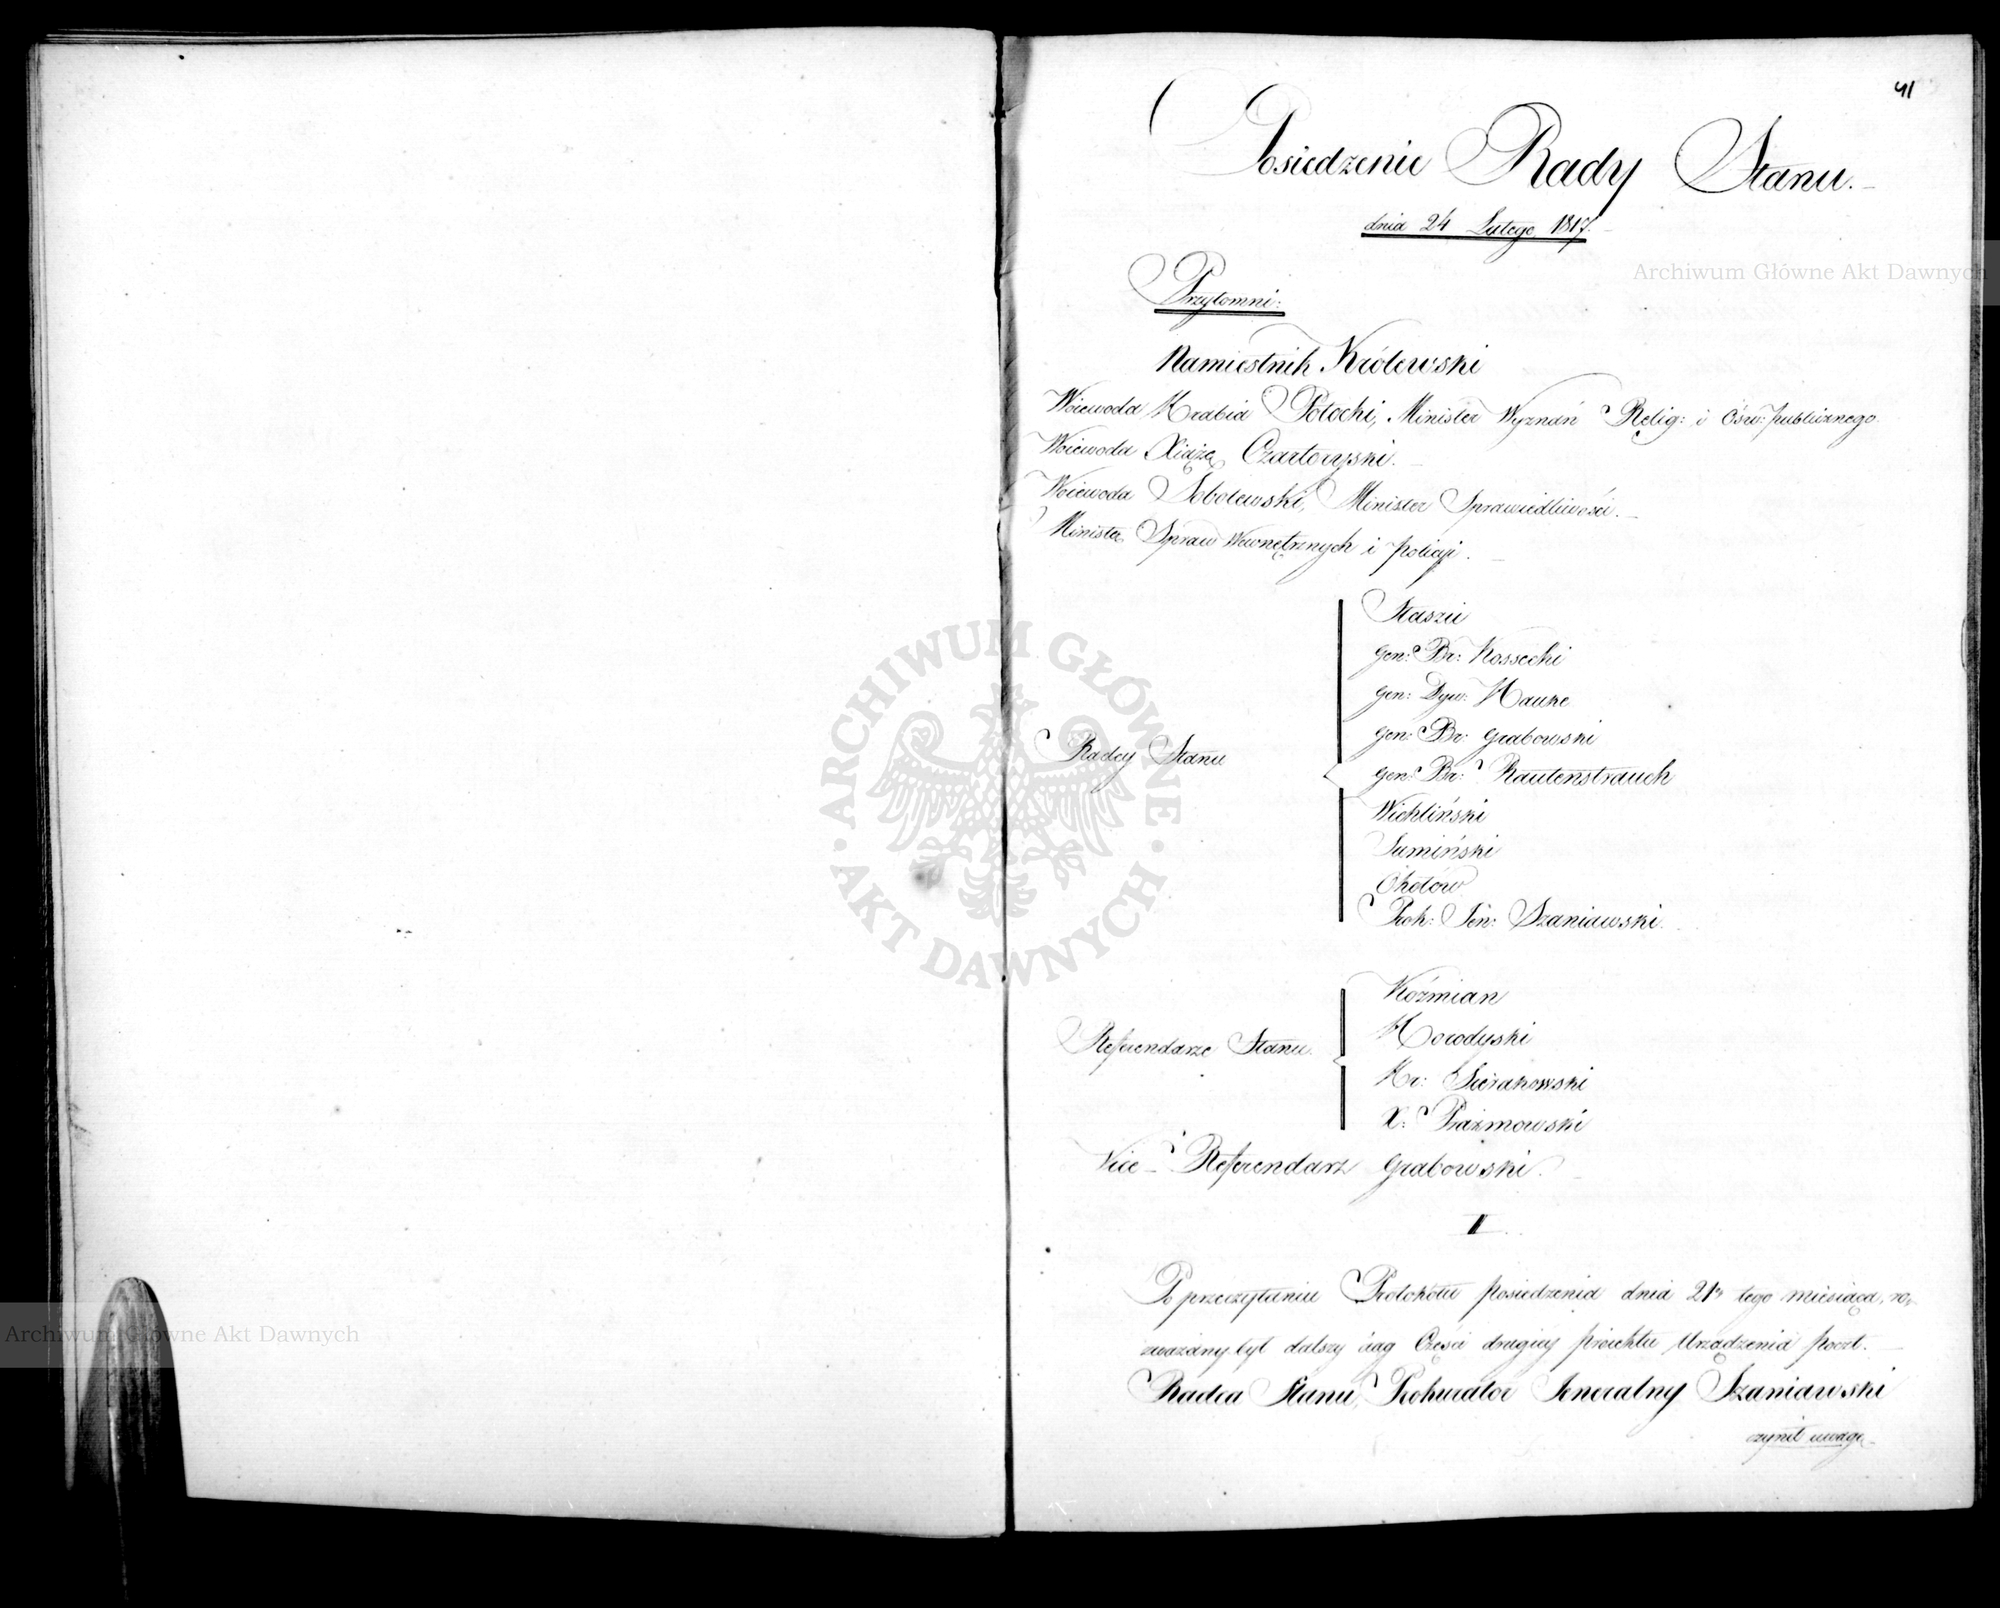 41
Posiedzenie Rady Stanu.
dnia 24 Lutego 1817.
Przytomni:
Namiestnik Królewski
Woiewoda Hrabia Potocki, Minister Wyznań Relig: i Ośw: publicznego.
Woiewoda Xiążę Czartoryski.
Woiewoda Sobolewski, Minister Sprawiedliwości.
Minister Spraw Wewnętrznych i Policyi.
Staszic
gen: Br: Kossecki
gen: Dyw: Hauke
gen: Br: Grabowski
Radcy Stanu
gen: Br: Rautenstrauch
Wichliński
Sumiński
Okołów
Prok: Jen: Szaniawski.
Koźmian
Horodyski
Referendarze Stanu.
Hr: Sierakowski
X: Prażmowski
Vice-Referendarz Grabowski.
I
Po przeczytaniu Protokołu posiedzenia dnia 21go tego miesiąca, ro-
zważany był dalszy ciąg Części drugiey proiektu Urządzenia poczt.
Radca Stanu, Prokurator Jeneralny Szaniawski
czynił uwagę
Archiwum Główne Akt Dawnych
Archiwum Główne Akt Dawnych
ARCHIWUM GŁÓWNE AKT DAWNYCH